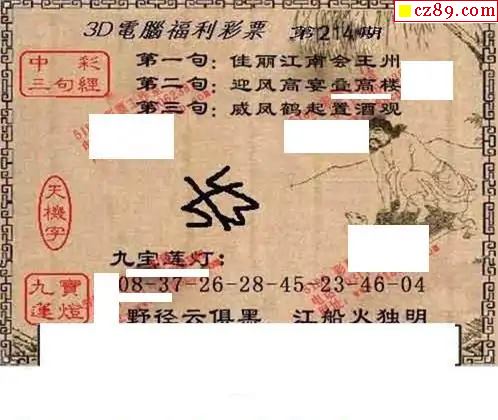 cz89.com
3D電腦福利彩票 第214期
中彩
三句經
第一句:佳丽江南会王州
第二句:迎风高宴叠高楼
第三句:威凤鹤起置酒观
天機字
九宝莲灯:
九寶
蓮燈
08-37-26-28-45-23-46-04
野径云俱黑 江船火独明